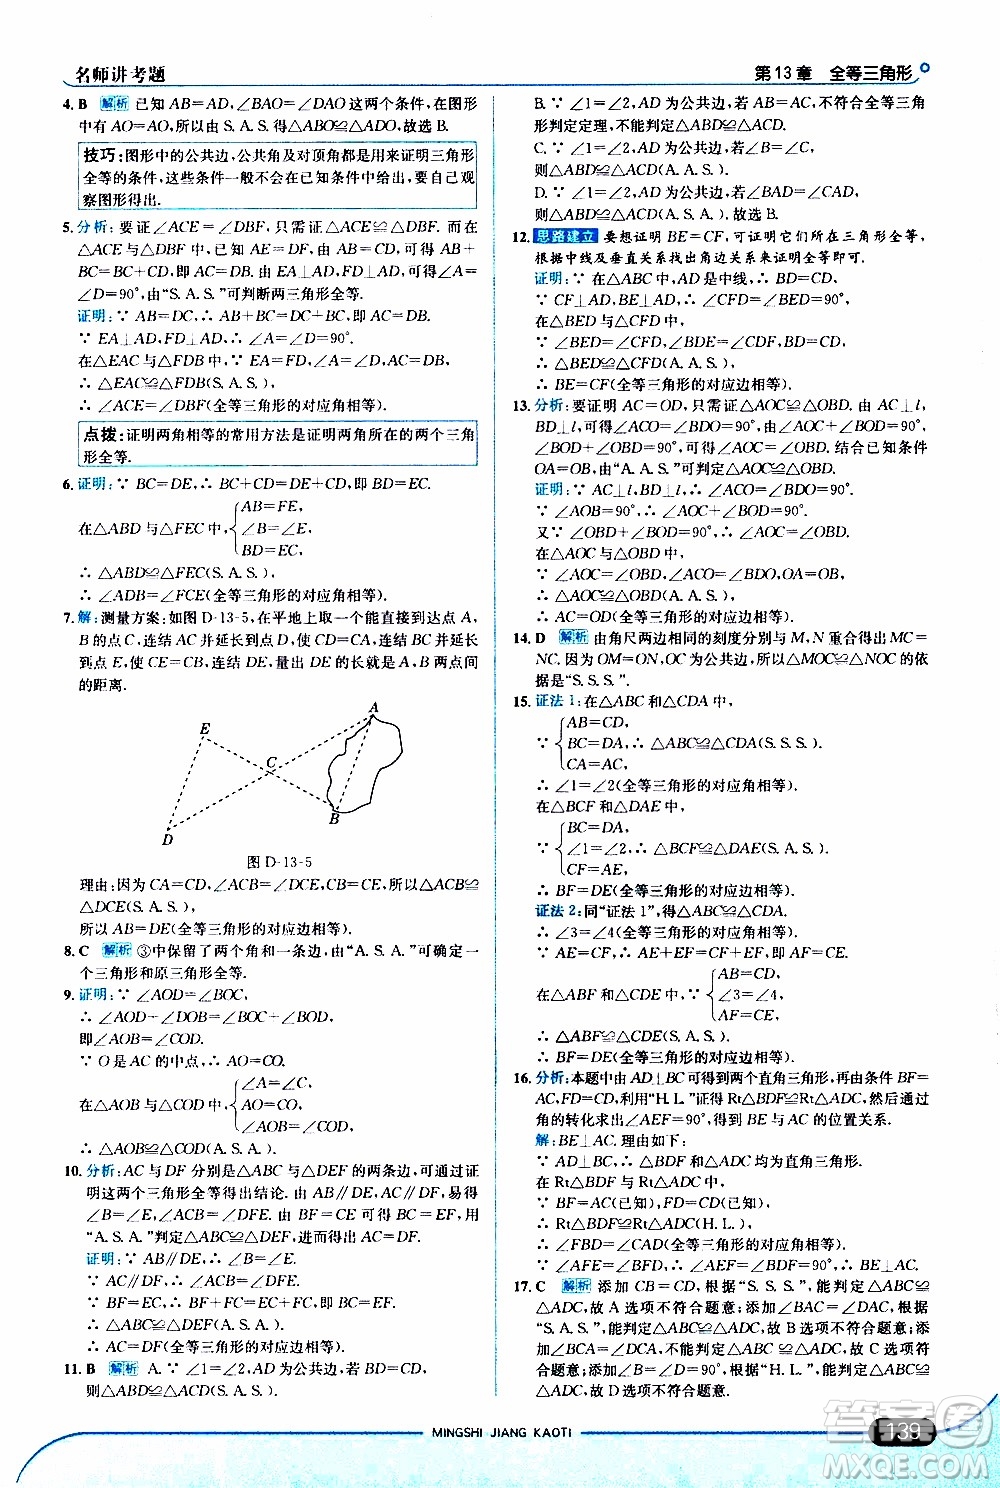 名师讲考题
第13章 全等三角形
4. B 解析 已知 AB=AD,∠BAO=∠DAO这两个条件,在图形
中有AO=AO,所以由 S. A. S. 得△ABO≌△ADO,故选 B.
技巧:图形中的公共边,公共角及对顶角都是用来证明三角形
全等的条件,这些条件一般不会在已知条件中给出,要自己观
察图形得出.
5. 分析:要证∠ACE=∠DBF,只需证△ACE≌△DBF. 而在
△ACE与△DBF 中,已知 AE=DF,由AB=CD,可得 AC=
BD,故只需再证明∠A=∠D. 由EA⊥AD,FD⊥AD,可得∠A=
∠D=90°,由“S. A. S.”可判断两三角形全等.
证明:∵ AB=DC,∴ AB+BC=DC+BC,即 AC=DB.
∵ EA⊥AD,FD⊥AD,∴ ∠A=∠D=90°.
在△EAC与△FDB 中,∵ EA=FD,∠A=∠D,AC=DB,
∴ △EAC≌△FDB(S. A. S.),
∴ ∠ACE=∠DBF(全等三角形的对应角相等).
点拨:证明两角相等的常用方法是证明两角所在的两个三角
形全等.
6. 证明:∵ BC=DE,∴ BC+CD=DE+CD,即 BD=EC.
AB=FE,
在△ABD 与△FEC 中, ∠B=∠E,
BD=EC,
∴ △ABD≌△FEC(S. A. S.),
∴ ∠ADB=∠FCE(全等三角形的对应角相等).
7. 解:测量方案:如图 D-13-5,在平地上取一个能直接到达点 A,
B 的点 C,连结 AC 并延长到点 D,使 CD=CA,连结 BC 并延长
到点 E,使 CE=CB,连结 DE,量出 DE 的长,就是 A,B 两点间
的距离.
A
E
C
B
D
图 D-13-5
理由:因为 CA=CD,∠ACB=∠DCE,BC=EC,所以△ACB≌
△DCE(S. A. S.),
所以 AB=DE(全等三角形的对应边相等).
8. C 解析 ③中保留了两个角和一条边,由“A. S. A.”可确定一
个三角形和原三角形全等.
9. 证明:∵ ∠AOD=∠BOC,
∴ ∠AOD-∠BOD=∠BOC-∠BOD,
即∠AOB=∠COD.
∵ O 是 AC 的中点,∴ AO=CO.
∠A=∠C,
在△AOB 与△COD 中, AO=CO,
∠AOB=∠COD,
∴ △AOB≌△COD(A. S. A.).
10. 分析:AC 与 DF 分别是△ABC 与△DEF 的两条边,可通过证
明这两个三角形全等得出结论. 由 AB∥DE,AC∥DF,易得
∠B=∠E,∠ACB=∠DFE. 由 BF=CE 可得 BC=EF,用
“A. S. A.”判定△ABC≌△DEF,可得 AC=DF.
证明:∵ AB∥DE,∴ ∠B=∠E.
∵ AC∥DF,∴ ∠ACB=∠DFE.
∵ BF=EC,∴ BF+FC=EC+FC,即 BC=EF,
∴ △ABC≌△DEF(A. S. A.),
∴ AC=DF(全等三角形的对应边相等).
11. B 解析 A. ∵ ∠1=∠2,AD 为公共边,若 BD=CD,
则△ABD≌△ACD(S. A. S.).
B. ∵ ∠1=∠2,AD 为公共边,若 AB=AC,不符合全等三角
形判定定理,不能判定△ABD≌△ACD.
C. ∵ ∠1=∠2,AD 为公共边,若∠B=∠C,
则△ABD≌△ACD(A. A. S.).
D. ∵ ∠1=∠2,AD为公共边,若∠BAD=∠CAD,
则△ABD≌△ACD(A. S. A.),故选 B.
12. 思路建立 要想证明 BE=CF,可证明它们所在三角形全等,
根据中线及垂直关系找出角边关系来证明全等即可.
证明:∵ 在△ABC 中,AD 是中线,∴ BD=CD.
∵ CF⊥AD,BE⊥AD,∴ ∠CFD=∠BED=90°.
在△BED 与△CFD 中,
∵ ∠BED=∠CFD,∠BDE=∠CDF,BD=CD,
∴ △BED≌△CFD(A. A. S.),
∴ BE=CF(全等三角形的对应边相等).
13. 分析:要证明 AC=OD,只需证△AOC≌△OBD. 由 AC⊥l,
BD⊥l,可得∠ACO=∠BDO=90°,∠AOC+∠BOD=90°,
∠BOD+∠OBD=90°,可得∠AOC=∠OBD. 结合已知条件
OA=OB,由“A. A. S.”可判定△AOC≌△OBD.
证明:∵ AC⊥l,BD⊥l,∴ ∠ACO=∠BDO=90°.
∵ ∠AOB=90°,∴ ∠AOC+∠BOD=90°.
又∵ ∠OBD+∠BOD=90°,∴ ∠AOC=∠OBD.
在△AOC 与△OBD 中,
∵ ∠AOC=∠OBD,∠ACO=∠BDO,OA=OB,
∴ △AOC≌△OBD(A. A. S.),
∴ AC=OD(全等三角形的对应边相等).
14. D 解析 由角尺两边相同的刻度分别与 M,N 重合得出 MC=
NC. 因为 OM=ON,OC 为公共边,所以△MOC≌△NOC 的依
据是“S. S. S.”.
15. 证法 1:在△ABC 和△CDA 中,
AB=CD,
∵ BC=DA,∴ △ABC≌△CDA(S. S. S.).
CA=AC,
∴ ∠1=∠2(全等三角形的对应角相等).
在△BCF 和△DAE 中,
BC=DA,
∵ ∠1=∠2,∴ △BCF≌△DAE(S. A. S.).
CF=AE,
∴ BF=DE(全等三角形的对应边相等).
证法 2:同“证法 1”,得△ABC≌△CDA.
∴ ∠3=∠4(全等三角形的对应角相等).
∵ AE=CF,∴ AE+EF=CF+EF,即 AF=CE.
AB=CD,
在△ABF 和△CDE 中,∵ ∠3=∠4,
AF=CE,
∴ △ABF≌△CDE(S. A. S.).
∴ BF=DE(全等三角形的对应边相等).
16. 分析:本题中由 AD⊥BC 可得到两个直角三角形,再由条件 BF=
AC,FD=CD,利用“H. L.”证得 Rt△BDF≌Rt△ADC,然后通过
角的转化求出∠AEF=90°,得到 BE 与 AC 的位置关系.
解:BE⊥AC. 理由如下:
∵ ∠ADB=90°,∴ △BDF 与△ADC 均为直角三角形.
在 Rt△BDF 与 Rt△ADC 中,
∵ BF=AC(已知),FD=CD(已知),
∴ Rt△BDF≌Rt△ADC(H. L.),
∴ ∠FBD=∠CAD(全等三角形的对应角相等).
∵ ∠AFE=∠BFD,∴ ∠AEF=∠BDF=90°,∴ BE⊥AC.
17. C 解析 添加 CB=CD,根据“S. S. S.”,能判定△ABC≌
△ADC,故 A 选项不符合题意;添加∠BAC=∠DAC,根据
“S. A. S.”,能判定△ABC≌△ADC,故 B 选项不符合题意;添
加∠BCA=∠DCA,不能判定△ABC≌△ADC,故 C 选项
符合题意;添加∠B=∠D=90°,根据“H. L.”,能判定△ABC≌
△ADC,故 D 选项不符合题意.
MINGSHI JIANG KAOTI
139
答案圈
MXQE.COM